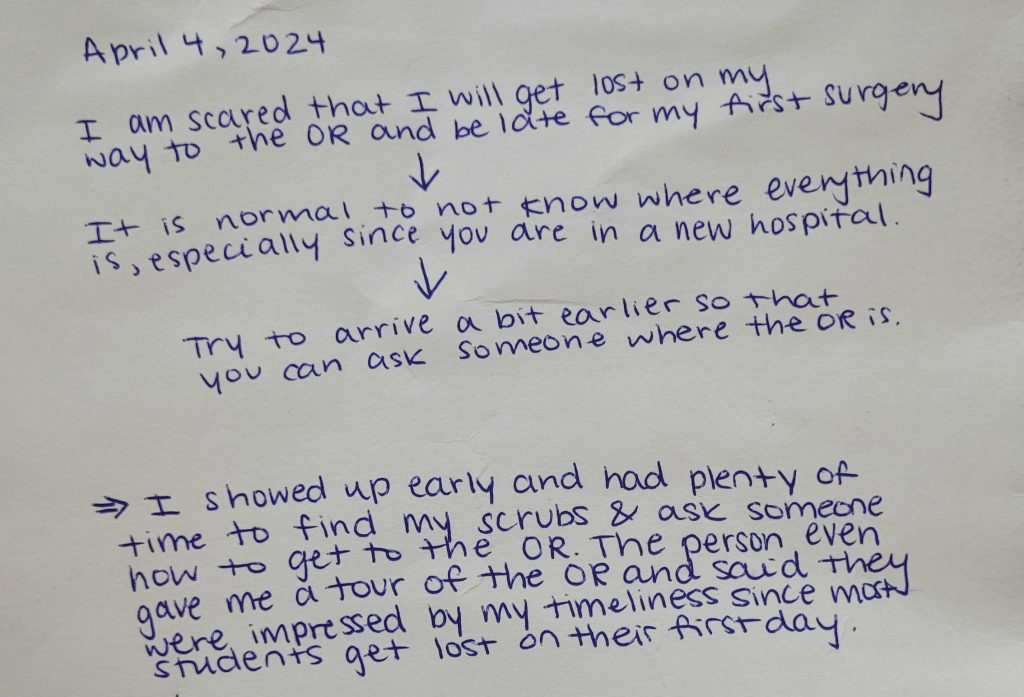 April 4, 2024
I am scared that I will get lost on my
way to the OR and be late for my first surgery
↓
It is normal to not know where everything
is, especially since you are in a new hospital.
↓
Try to arrive a bit earlier so that
you can ask someone where the OR is.
⇒ I showed up early and had plenty of
time to find my scrubs & ask someone
how to get to the OR. The person even
gave me a tour of the OR and said they
were impressed by my timeliness since most
students get lost on their first day.